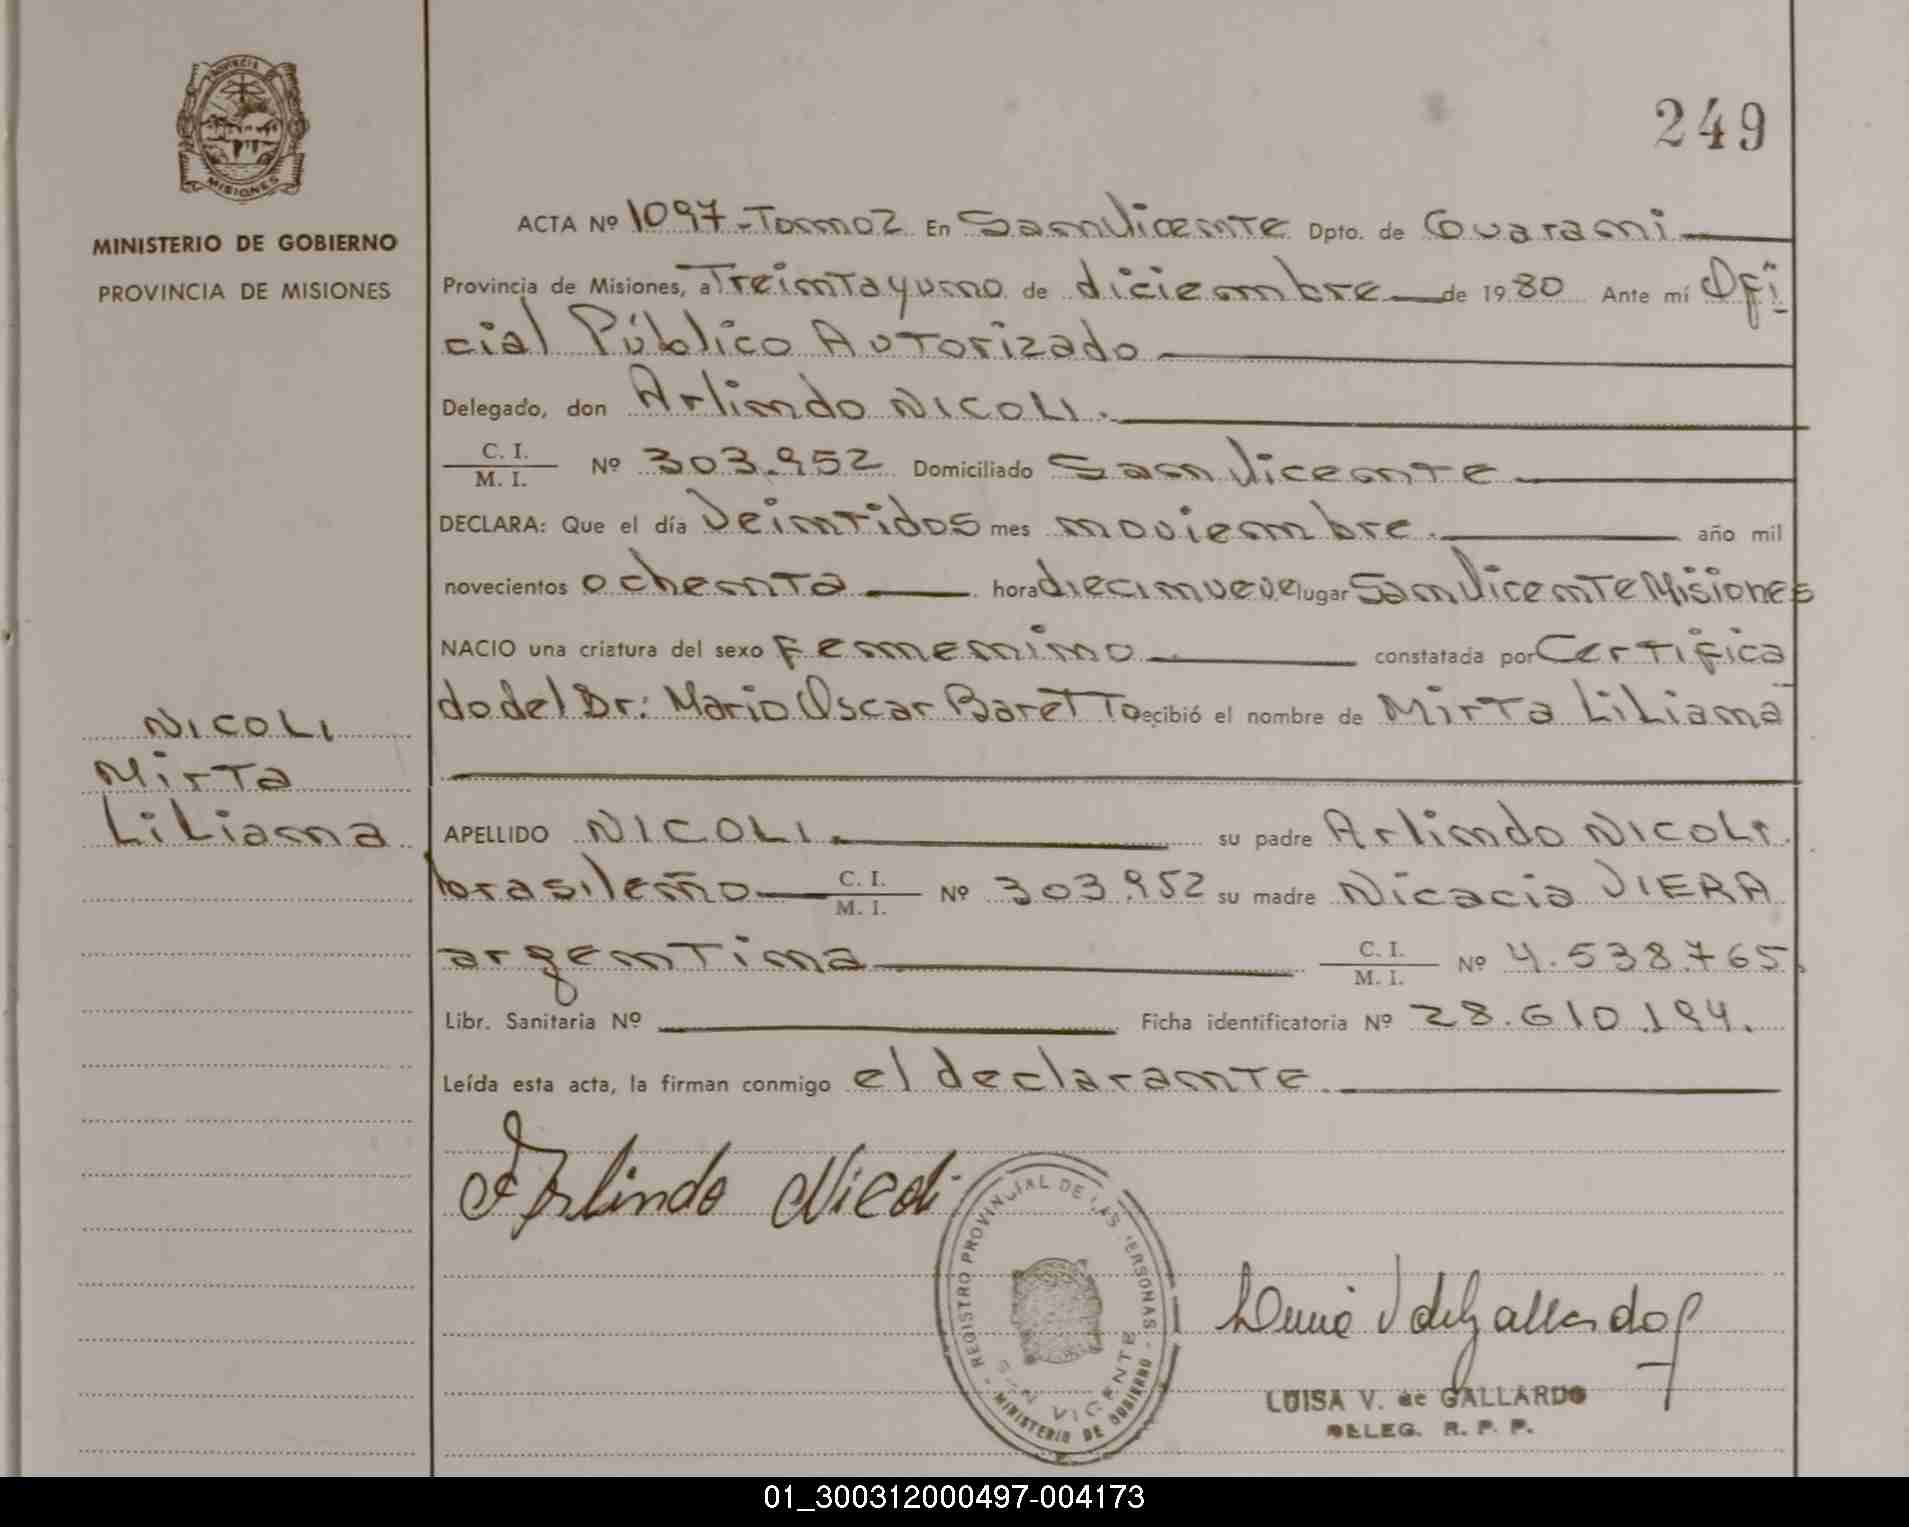 PROVINCIA
MISIONES
MINISTERIO DE GOBIERNO
PROVINCIA DE MISIONES
NICOLI
Mirta
Liliana
249
ACTA Nº 1097-Tomo 2 En San Vicente Dpto. de Guarani
Provincia de Misiones, a Treinta y uno de diciembre de 1980 Ante mí Ofi
cial Público Autorizado
Delegado, don Arlindo NICOLI.
C. I.
M. I. Nº 303.952 Domiciliado San Vicente
DECLARA: Que el día Veintidos mes noviembre. año mil
novecientos ochenta hora diecinueve lugar San Vicente Misiones
NACIO una criatura del sexo Femenino constatada por Certifica
do del Dr: Mario Oscar Baretto ecibió el nombre de Mirta Liliana
APELLIDO NICOLI. su padre Arlindo NICOLI.
brasileño C. I. M. I. Nº 303.952 su madre Nicacia VIERA
argentina C. I. M. I. Nº 4.538.765.
Libr. Sanitaria Nº Ficha identificatoria Nº 28.610.194.
Leída esta acta, la firman conmigo el declarante.
Arlindo Nicoli
REGISTRO PROVINCIAL DE LAS PERSONAS
SAN VICENTE
MINISTERIO DE GOBIERNO
LUISA V. de GALLARDO
DELEG. R. P. P.
01_300312000497-004173